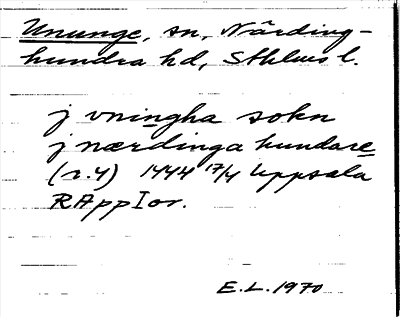 Ununge, sn, Närding-
hundra hd, Sthlms l.
j vningha sokn
j nærdinga hundare
(r.4) 1444 17/4 Uppsala
RAppIor.
E.L. 1970